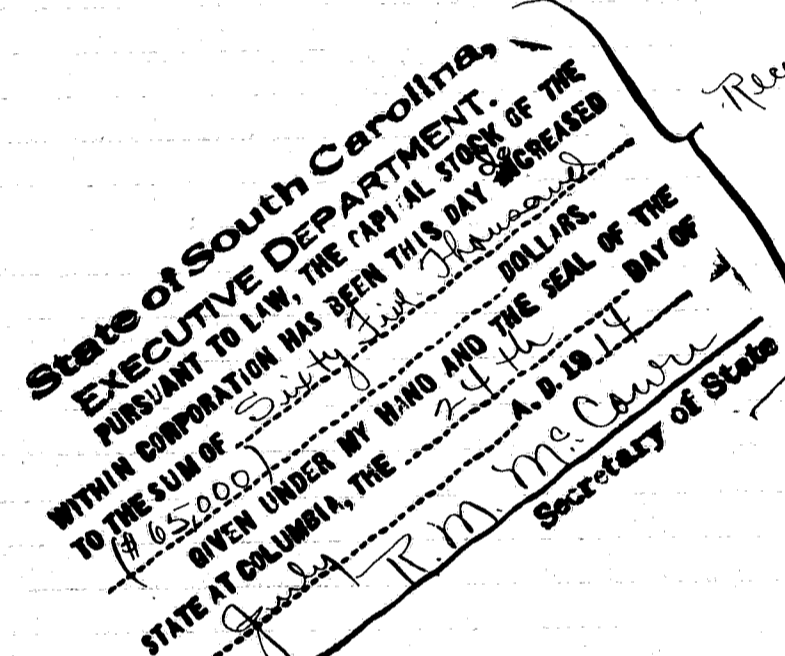 State of South Carolina,
EXECUTIVE DEPARTMENT.
PURSUANT TO LAW, THE CAPITAL STOCK OF THE
WITHIN CORPORATION HAS BEEN THIS DAY deCREASED
TO THE SUM OF Sixty Five Thousand
($65,000) DOLLARS.
GIVEN UNDER MY HAND AND THE SEAL OF THE
STATE AT COLUMBIA, THE 24th DAY OF
July A. D. 1914
R. M. McCown
Secretary of State